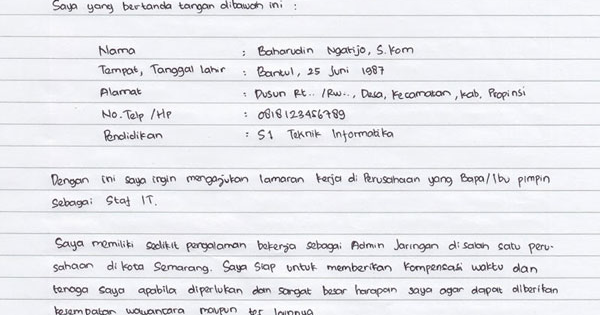 Saya yang bertanda tangan dibawah ini :
Nama : Baharudin Ngatijo, S.Kom
Tempat, Tanggal lahir : Bantul, 25 Juni 1987
Alamat : Dusun Rt.. /Rw.., Desa, Kecamatan, Kab, Propinsi
No.Telp /Hp : 0818123456789
Pendidikan : S1 Teknik Informatika
Dengan ini saya ingin mengajukan lamaran kerja di Perusahaan yang Bapa/Ibu pimpin
sebagai Staf IT.
Saya memiliki sedikit pengalaman bekerja sebagai Admin Jaringan di salah satu peru-
sahaan di kota Semarang. Saya siap untuk memberikan kompensasi waktu dan
tenaga saya apabila diperlukan dan sangat besar harapan saya agar dapat diberikan
kesempatan wawancara maupun tes lainnya